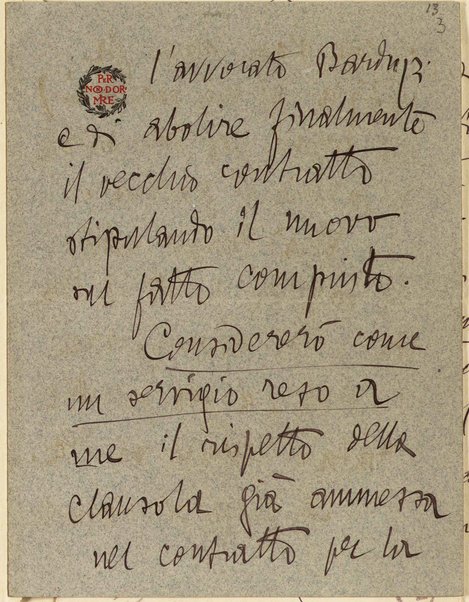 13
3
PER
NON DOR
MIRE
l'avvocato Barduzzi
e di abolire finalmente
il vecchio contratto
stipulando il nuovo
sul fatto compiuto.
Considererò come
un servigio reso a
me il rispetto della
clausola già ammessa
nel contratto per la